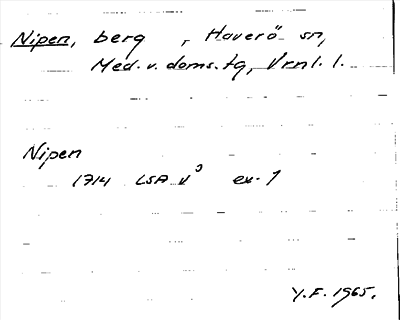 Nipen, berg , Haverö sn,
Med. v. doms. tg, Vrnl. l.
Nipen
1714 LSA V³ ex. 1
Y.F. 1965.